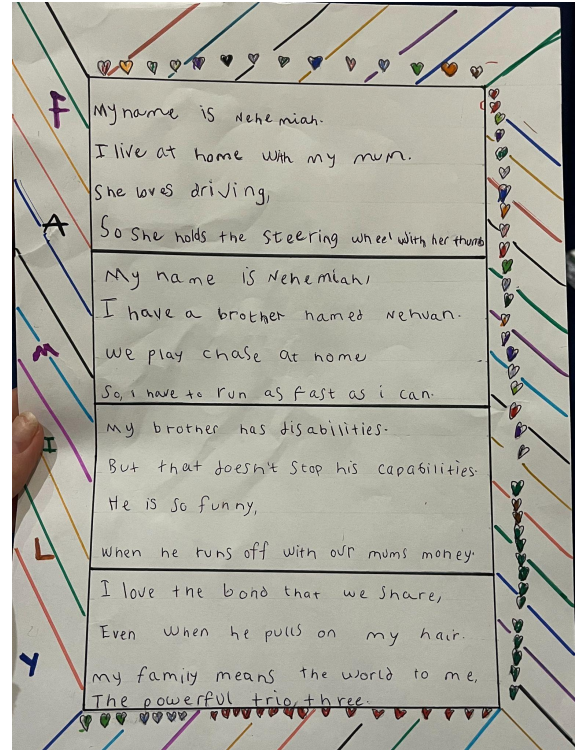 F
A
M
I
L
Y
My name is Nehemiah.
I live at home with my mum.
She loves driving,
So she holds the steering wheel with her thumb
My name is Nehemiah,
I have a brother named Nehvan.
we play chase at home
So, i have to run as fast as i can.
my brother has disabilities.
But that doesn't stop his capabilities.
He is so funny,
when he runs off with our mums money.
I love the bond that we share,
Even when he pulls on my hair.
my family means the world to me,
The powerful trio, three.